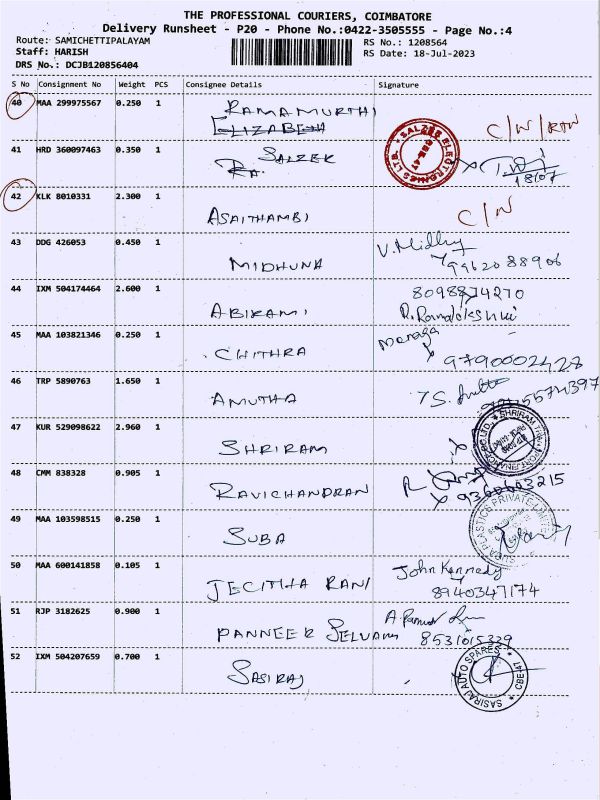 THE PROFESSIONAL COURIERS, COIMBATORE
Delivery Runsheet - P20 - Phone No.:0422-3505555 - Page No.:4
Route: SAMICHETTIPALAYAM
Staff: HARISH
DRS No.: DCJB120856404
RS No.: 1208564
RS Date: 18-Jul-2023
S No Consignment No Weight PCS Consignee Details Signature
40 MAA 299975567 0.250 1 RAMAMURTHI C/N/RTN
ELIZABETH
41 HRD 360097463 0.350 1 SALZER
RA. 18/07
42 KLK 8010331 2.300 1 ASAITHAMBI C/N
43 DDG 426053 0.450 1 MIDHUNA V. Midhu
9962088906
44 IXM 504174464 2.600 1 ABIRAMI 8098874270
45 MAA 103821346 0.250 1 CHITHRA
9790002428
46 TRP 5890763 1.650 1 AMUTHA
47 KUR 529098622 2.960 1 SHRIRAM
48 CMM 838328 0.905 1 RAVICHANDRAN 9360603215
49 MAA 103598515 0.250 1 SUBA
50 MAA 600141858 0.105 1 JECITHA RANI John Kennedy
8940347174
51 RJP 3182625 0.900 1 PANNEER SELVAM 8531015339
52 IXM 504207659 0.700 1 SASIRAJ
SASIRAJ AUTO SPARES CBE-47